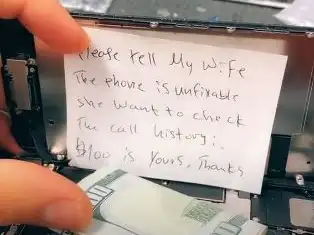 Please tell My Wife
The phone is unfixable
she want to check
The call history:.
$100 is Yours, Thanks
100